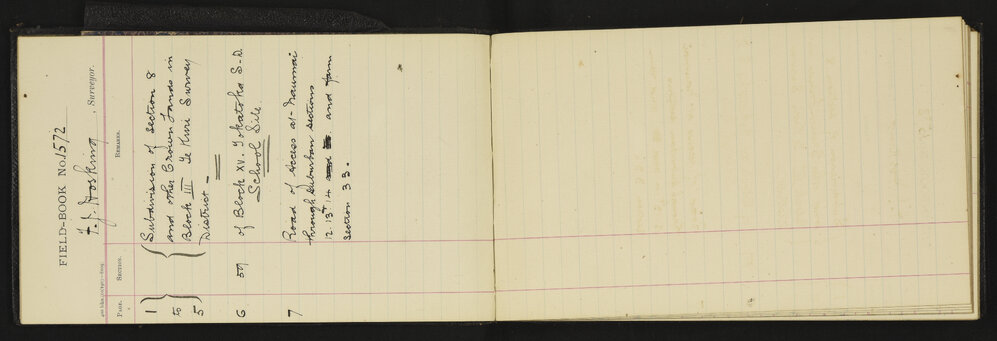 FIELD-BOOK No. 1572
F. J. Hosking, Surveyor.
PAGE. SECTION. REMARKS.
1 to 5 { Subdivision of Section 8
and other Crown Lands in
Block III Te Kuri Survey
District -
6 59 of Block XV. Tokatoka S-D.
School Site.
7 Road of access at Naumai
through Suburban Sections
12. 13 + 14 and farm
Section 33.